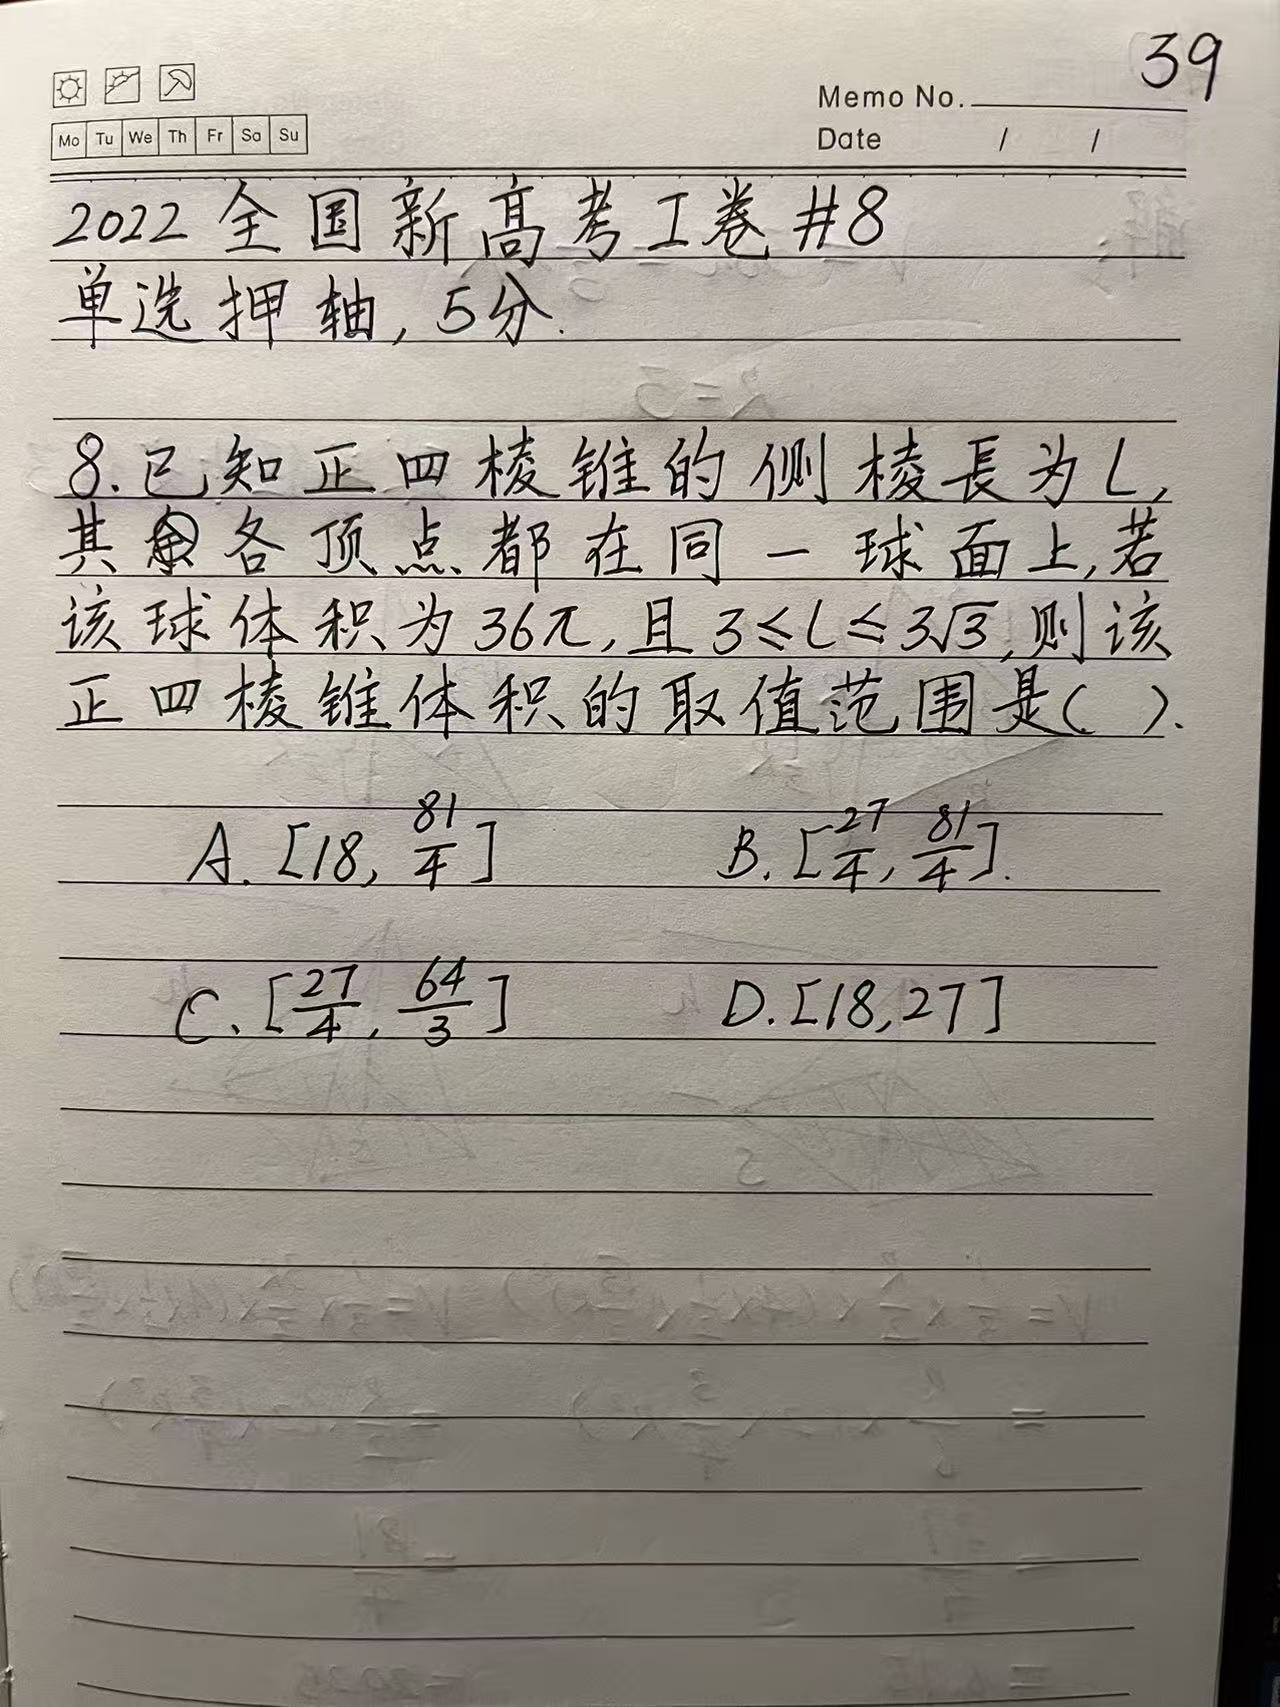 39
Memo No.
Mo Tu We Th Fr Sa Su
Date / /
2022全国新高考I卷#8
单选押轴,5分.
8.已知正四棱锥的侧棱長为l,
其各顶点都在同一球面上,若
该球体积为36π,且3≤l≤3√3,则该
正四棱锥体积的取值范围是( ).
A. [18, 81/4] B. [27/4, 81/4].
C. [27/4, 64/3] D. [18,27]